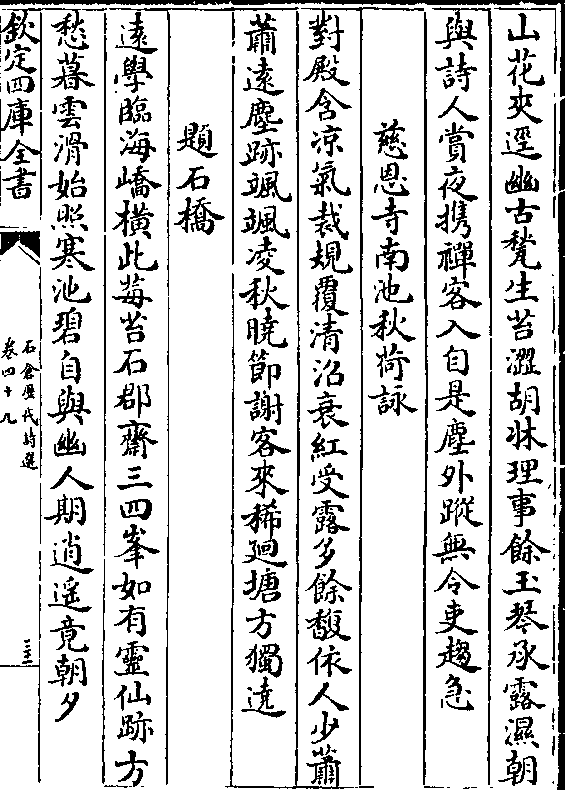 山花夾逕幽古甃生苔澀胡牀理事餘玉琴承露濕朝
與詩人賞夜攜禪客入自是塵外蹤無令吏趨急
慈恩寺南池秋荷詠
對殿含凉氣裁規覆清沼衰紅受露多餘馥依人少蕭
蕭遠塵跡颯颯凌秋曉節謝客來稀廻塘方獨遶
題石橋
遠學臨海嶠橫此莓苔石郡齋三四峯如有靈仙跡方
愁暮雲滑始照寒池碧自與幽人期逍遥竟朝夕
欽定四庫全書
石倉歷代詩選
卷四十九